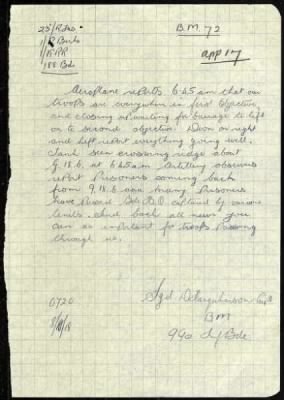 B.M. 72
1/5 R.
188 Bde
App 17
Aeroplane reports 6.45 am that our
troops are everywhere in first objective
and closing up waiting for barrage to lift
on to second objective. Divn on right
and left report everything going well.
Tank seen crossing ridge about
9.18.b. at 6.45am. Artillery observers
report Prisoners coming back
from 9.18.b. and many Prisoners
have Passed Bde H.Q. captured by various
units. Send back all news you
can as important for troops Passing
through us.
0720
Sgd Capt
B.M.
99th Inf Bde